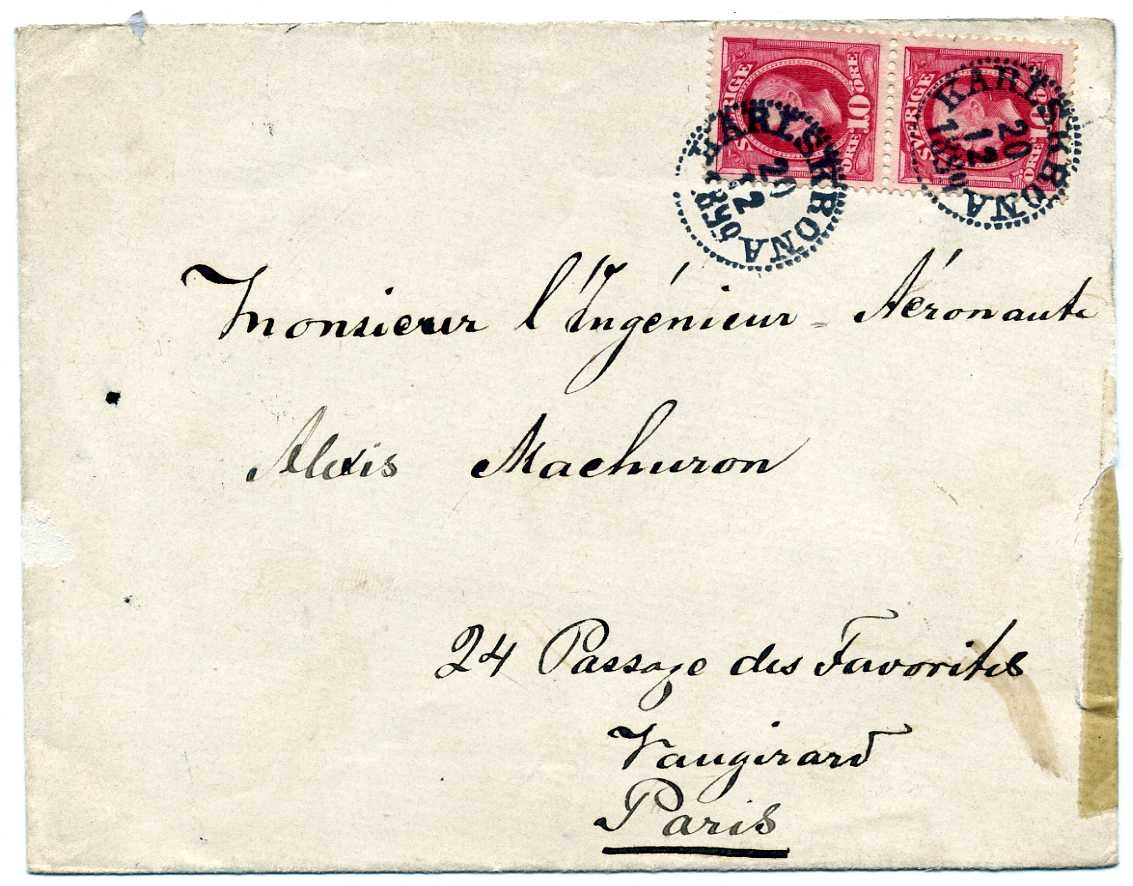 SVERIGE 10 ÖRE 10 ÖRE
SVERIGE 10 ÖRE 10 ÖRE
KARLSKRONA
20
12
KARLSKRONA
20
12
Monsieur l'Ingénieur - Aéronaute
Alexis Machuron
24 Passage des Favorites
Vaugirard
Paris